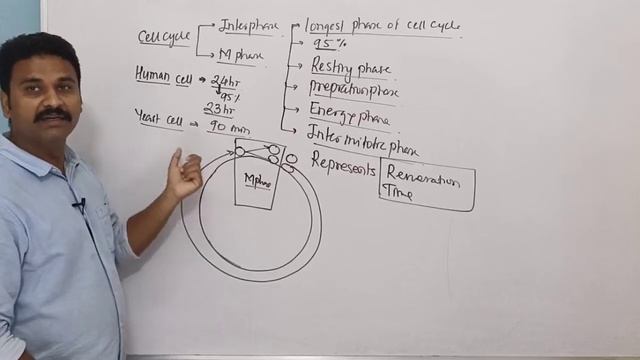 Cell cycle
Interphase
M phase
Human cell → 24hr
95%
23hr
Yeast cell → 90 min
M phase
longest phase of cell cycle
95%
Resting phase
prepration phase
Energy phase
Intermitotic phase
Represents
Reneration
Time